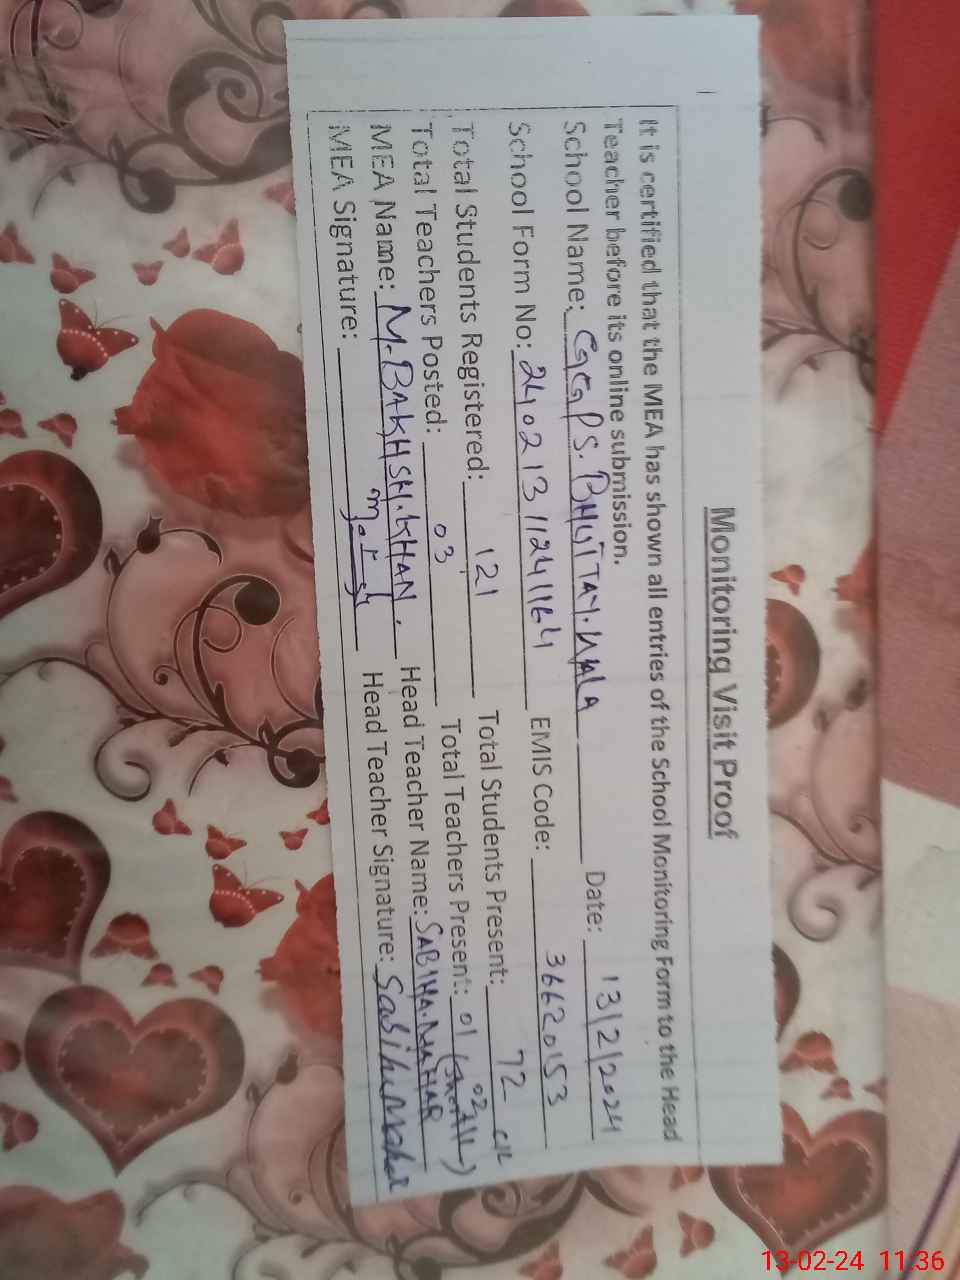 Monitoring Visit Proof
It is certified that the MEA has shown all entries of the School Monitoring Form to the Head
Teacher before its online submission.
School Name: GGPS. BHUTTAY.WALA Date: 13/2/2024
School Form No: 24021311241164 EMIS Code: 36620153
Total Students Registered: 121 Total Students Present: 72
Total Teachers Posted: 03 Total Teachers Present: 01 02
MEA Name: M.BAKHSH.KHAN. Head Teacher Name: SABIHA.NAHAR
MEA Signature: Head Teacher Signature: Sabiha Nahar
13-02-24 11:36